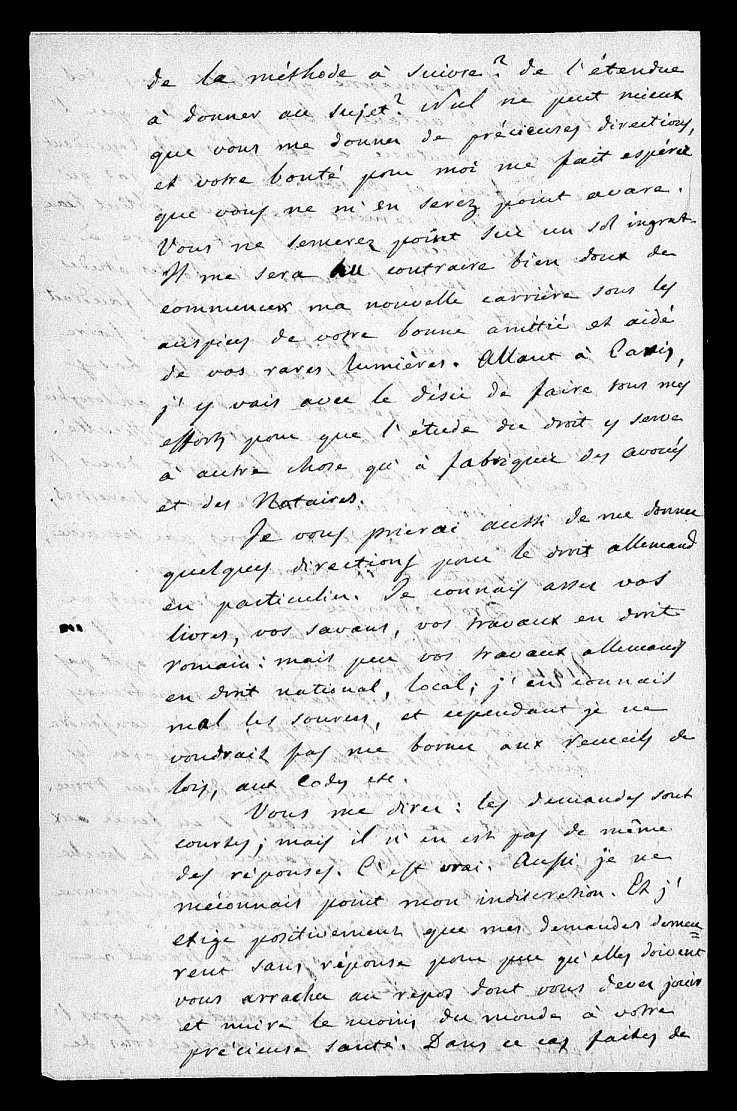 de la méthode à suivre? de l'étendue
à donner au sujet? Nul ne peut mieux
que vous me donner de précieuses directions,
et votre bonté pour moi me fait espérer
que vous ne m'en serez point avare.
Vous ne semerez point sur un sol ingrat.
Il me sera au contraire bien doux de
commencer ma nouvelle carrière sous les
auspices de votre bonne amitié et aidé
de vos rares lumières. Allant à Paris,
j'y vais avec le désir de faire tous mes
efforts pour que l'étude du droit y serve
à autre chose qu'à fabriquer des avoués
et des Notaires.
Je vous prierai aussi de me donner
quelques directions pour le droit allemand
en particulier. Je connais assez vos
livres, vos savans, vos travaux en droit
romain: mais peu vos travaux allemands
en droit national, local; j'en connais
mal les sources, et cependant je ne
voudrais pas me borner aux recueils de
lois, aux Codes etc.
Vous me direz: les demandes sont
courtes; mais il n'en est pas de même
des réponses. C'est vrai. Aussi je ne
méconnais point mon indiscretion. Et j'
exige positivement que mes demandes demeu=
rent sans réponse pour peu qu'elles doivent
vous arracher au repos dont vous devez jouir
et nuire le moins du monde à votre
précieuse santé. Dans ce cas faites de